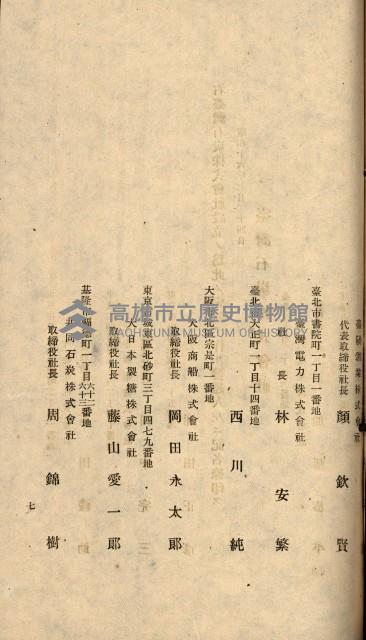 臺陽鑛業株式會社
代表取締役社長 顏欽賢
臺北市書院町一丁目一番地
臺灣電力株式會社
社長 林安繁
臺北市 一丁目十四番地
西川純
大阪市北區宗是町一番地
大阪商船株式會社
取締役社長 岡田永太郎
東京市城東區北砂町三丁目四七九番地
大日本製糖株式會社
取締役社長 藤山愛一郎
基隆市 町一丁目六十二六十三番地
共同石炭株式會社
取締役社長 周錦樹
七
高雄市立歷史博物館
KAOHSIUNG MUSEUM OF HISTORY